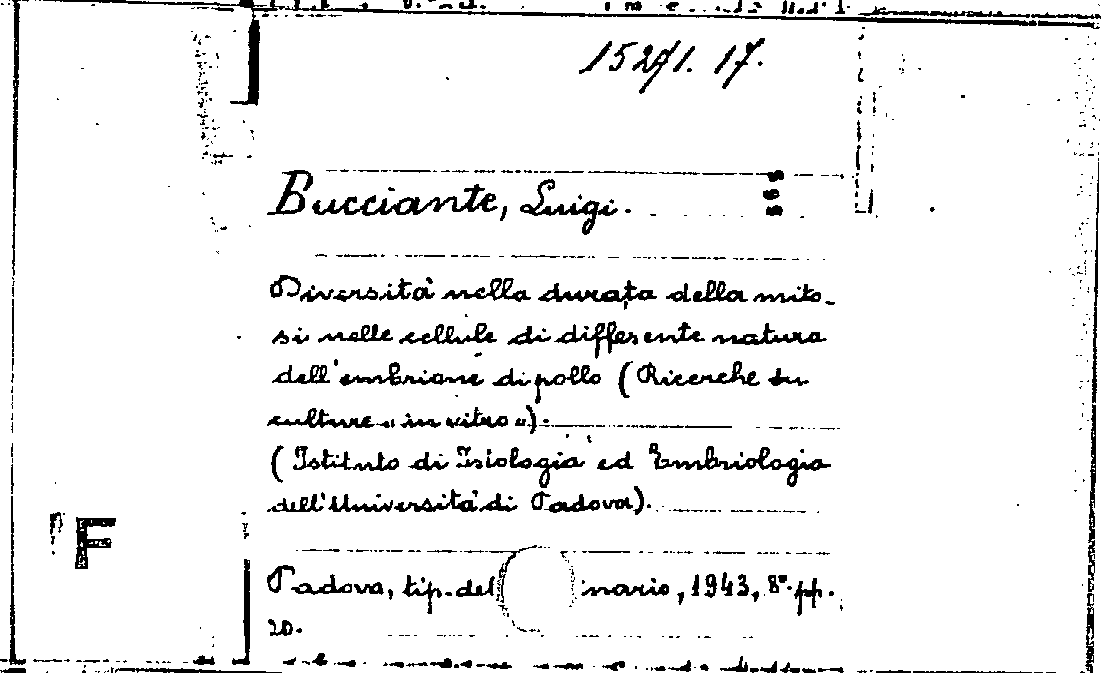 152/1. 17.
Bucciante, Luigi.
Diversità nella durata della mito-
si nelle cellule di differente natura
dell'embrione di pollo (Ricerche su
culture « in vitro »).
(Istituto di Isiologia ed Embriologia
dell'Università di Padova).
F
Padova, tip. del nario, 1943, 8°. pp.
20.